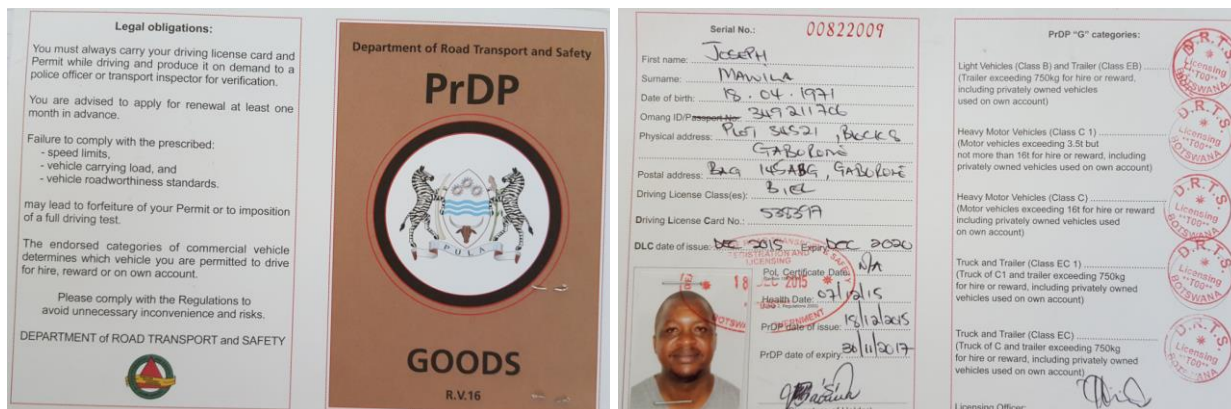 Legal obligations:
You must always carry your driving license card and
Permit while driving and produce it on demand to a
police officer or transport inspector for verification.
You are advised to apply for renewal at least one
month in advance.
Failure to comply with the prescribed:
- speed limits,
- vehicle carrying load, and
- vehicle roadworthiness standards.
may lead to forfeiture of your Permit or to imposition
of a full driving test.
The endorsed categories of commercial vehicle
determines which vehicle you are permitted to drive
for hire, reward or on own account.
Please comply with the Regulations to
avoid unnecessary inconvenience and risks.
DEPARTMENT of ROAD TRANSPORT and SAFETY
Department of Road Transport and Safety
PrDP
PULA
GOODS
R.V.16
Serial No.: 00822009
First name: JOSEPH
Surname: MAWILA
Date of birth: 18.04.1971
Omang ID/Passport No: 349211706
Physical address: PLOT 54521, BLOCK 8
GABORONE
Postal address: BAG 145ABG, GABORONE
Driving License Class(es):
Driving License Card No.:
DLC date of issue: DEC 2015 Expiry DEC 2020
Pol. Certificate Date: N/A
18 DEC 2015
Health Date: 07/12/15
PrDP date of issue: 18/12/2015
PrDP date of expiry: 30/11/2017
PrDP "G" categories:
Light Vehicles (Class B) and Trailer (Class EB)
(Trailer exceeding 750kg for hire or reward,
including privately owned vehicles
used on own account)
Heavy Motor Vehicles (Class C 1)
(Motor vehicles exceeding 3.5t but
not more than 16t for hire or reward, including
privately owned vehicles used on own account)
Heavy Motor Vehicles (Class C)
(Motor vehicles exceeding 16t for hire or reward
including privately owned vehicles used
on own account)
Truck and Trailer (Class EC 1)
(Truck of C1 and trailer exceeding 750kg
for hire or reward, including privately owned
vehicles used on own account)
Truck and Trailer (Class EC)
(Truck of C and trailer exceeding 750kg
for hire or reward, including privately owned
vehicles used on own account)
Licensing Officer:
D.R.T.S
Licensing
"T00"
BOTSWANA
D.R.T.S
Licensing
"T00"
BOTSWANA
D.R.T.S
Licensing
"T00"
BOTSWANA
D.R.T.S
Licensing
"T00"
BOTSWANA
D.R.T.S
Licensing
"T00"
BOTSWANA